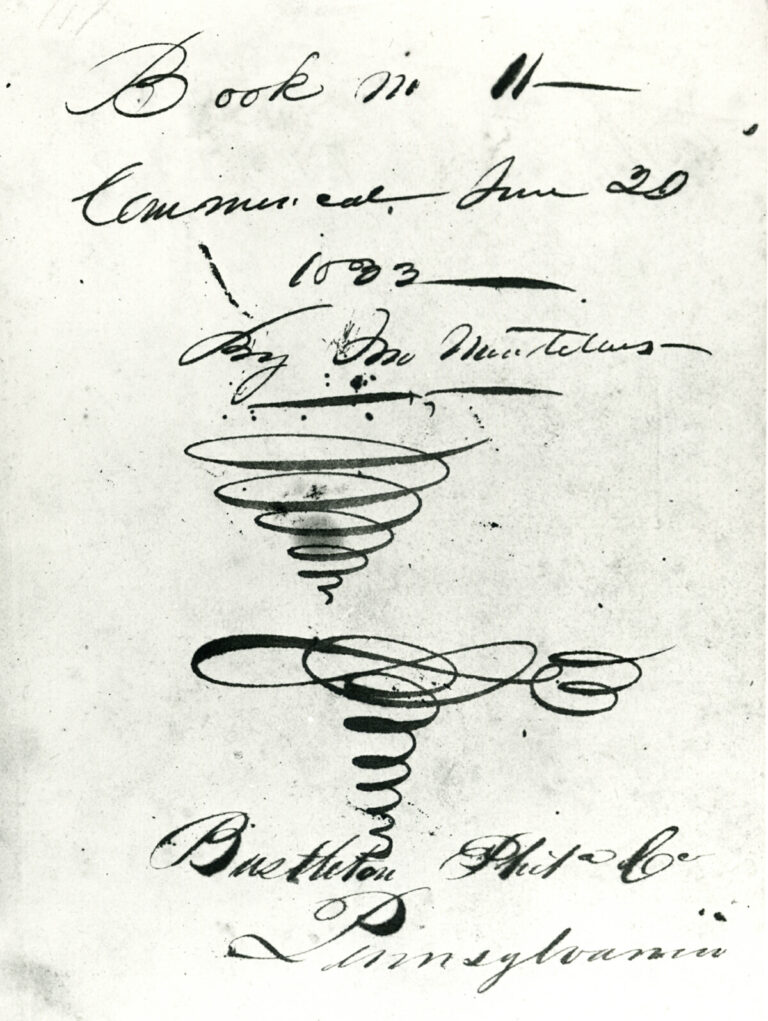 Book no 11
Commenced June 20
1833
By Jno
Bustleton Phila Co
Pennsylvania